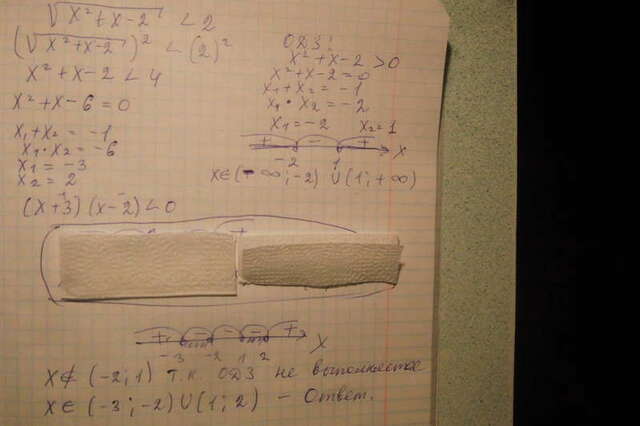 √x²+x-2 < 2
(√x²+x-2)² < (2)²
x²+x-2 < 4
x²+x-6=0
x₁+x₂ = -1
x₁·x₂ = -6
x₁ = -3
x₂ = 2
(x+3)(x-2)<0
ОДЗ:
x²+x-2 >0
x²+x-2=0
x₁+x₂ = -1
x₁·x₂ = -2
x₁=-2 x₂=1
+ - + x
-2 1
x∈(-∞;-2) U(1;+∞)
+
+ - - - + x
-3 -2 1 2
x∉(-2;1) т.к. ОДЗ не выполняется
x∈(-3;-2)U(1;2) - Ответ.